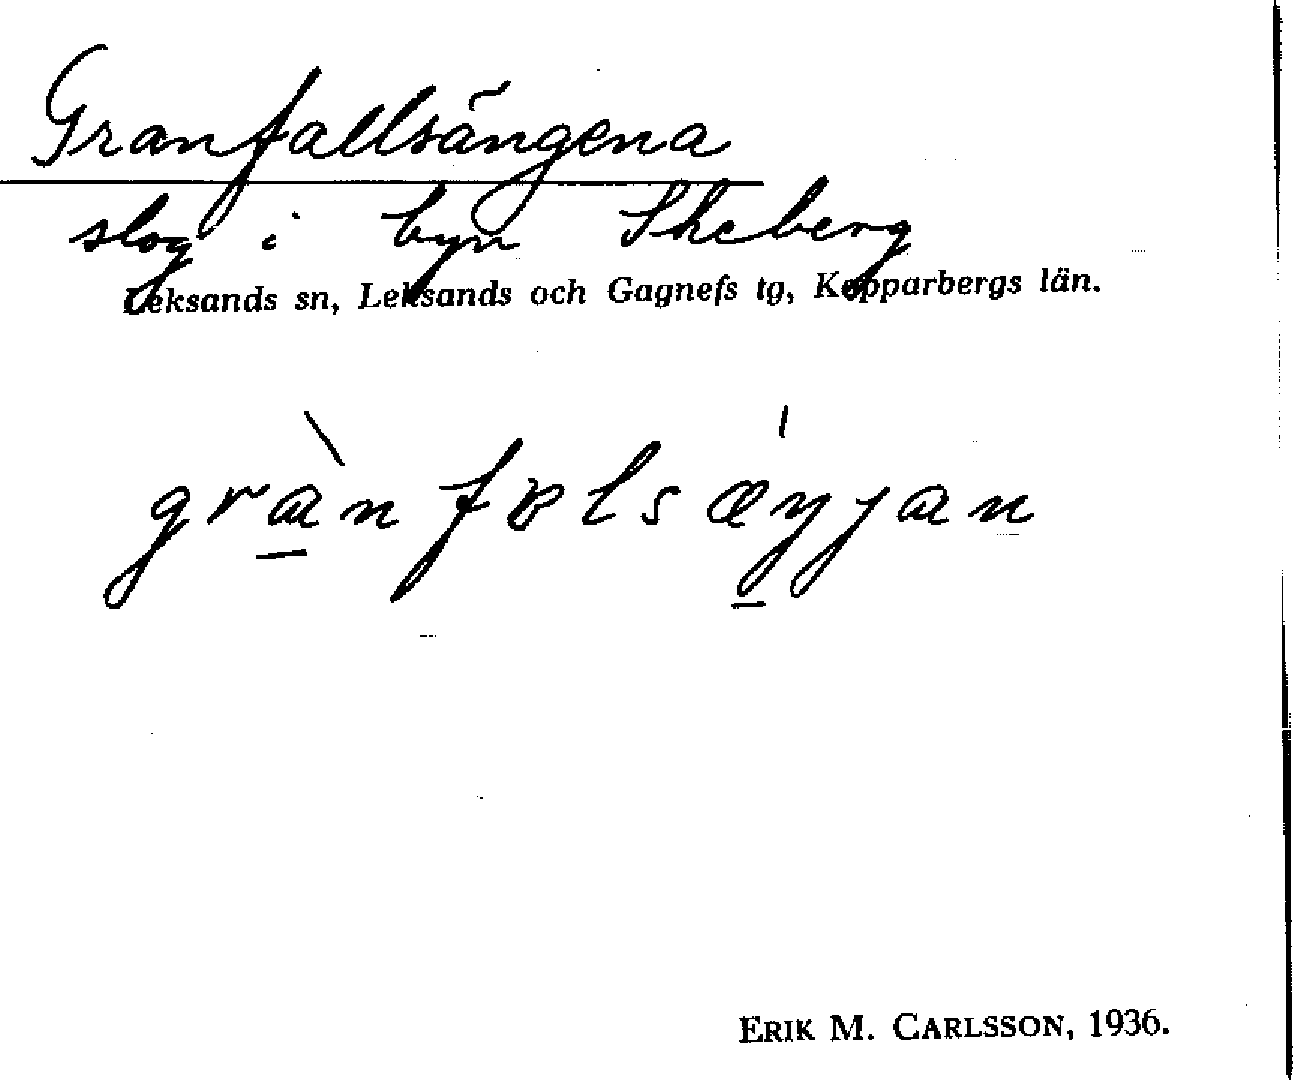 Granfallsängena
slog i byn Skeberg
Leksands sn, Leksands och Gagnefs tg, Kopparbergs län.
grànfɐlsæŋjan
ERIK M. CARLSSON, 1936.